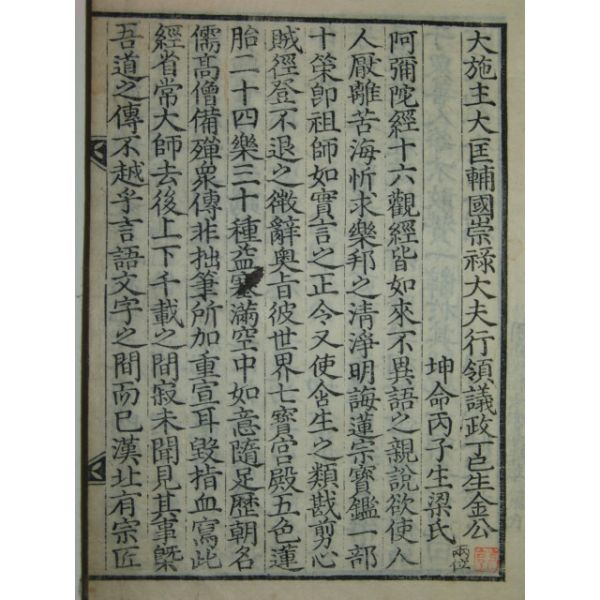 大施主大匡輔國崇祿大夫行領議政丁巳生金公
坤命丙子生梁氏
兩位
阿彌陀經十六觀經皆如來不異語之親說欲使人
人厭離苦海忻求樂邦之清淨明誨蓮宗寶鑑一部
十策卽祖師如實言之正今又使含生之類戡剪心
賊徑登不退之徵辭奧旨彼世界七寶宮殿五色蓮
胎二十四樂三十種益塞滿空中如意隨足歷朝名
儒高僧備殫衆傳非拙筆所加重宣耳毀指血寫此
經省常大師去後上下千載之間寂未聞見其事槩
吾道之傳不越乎言語文字之間而已漢北有宗匠